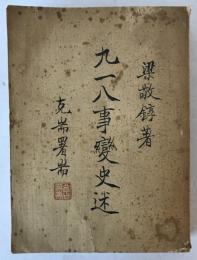 梁敬錞著
九一八事變史述
克耑署耑